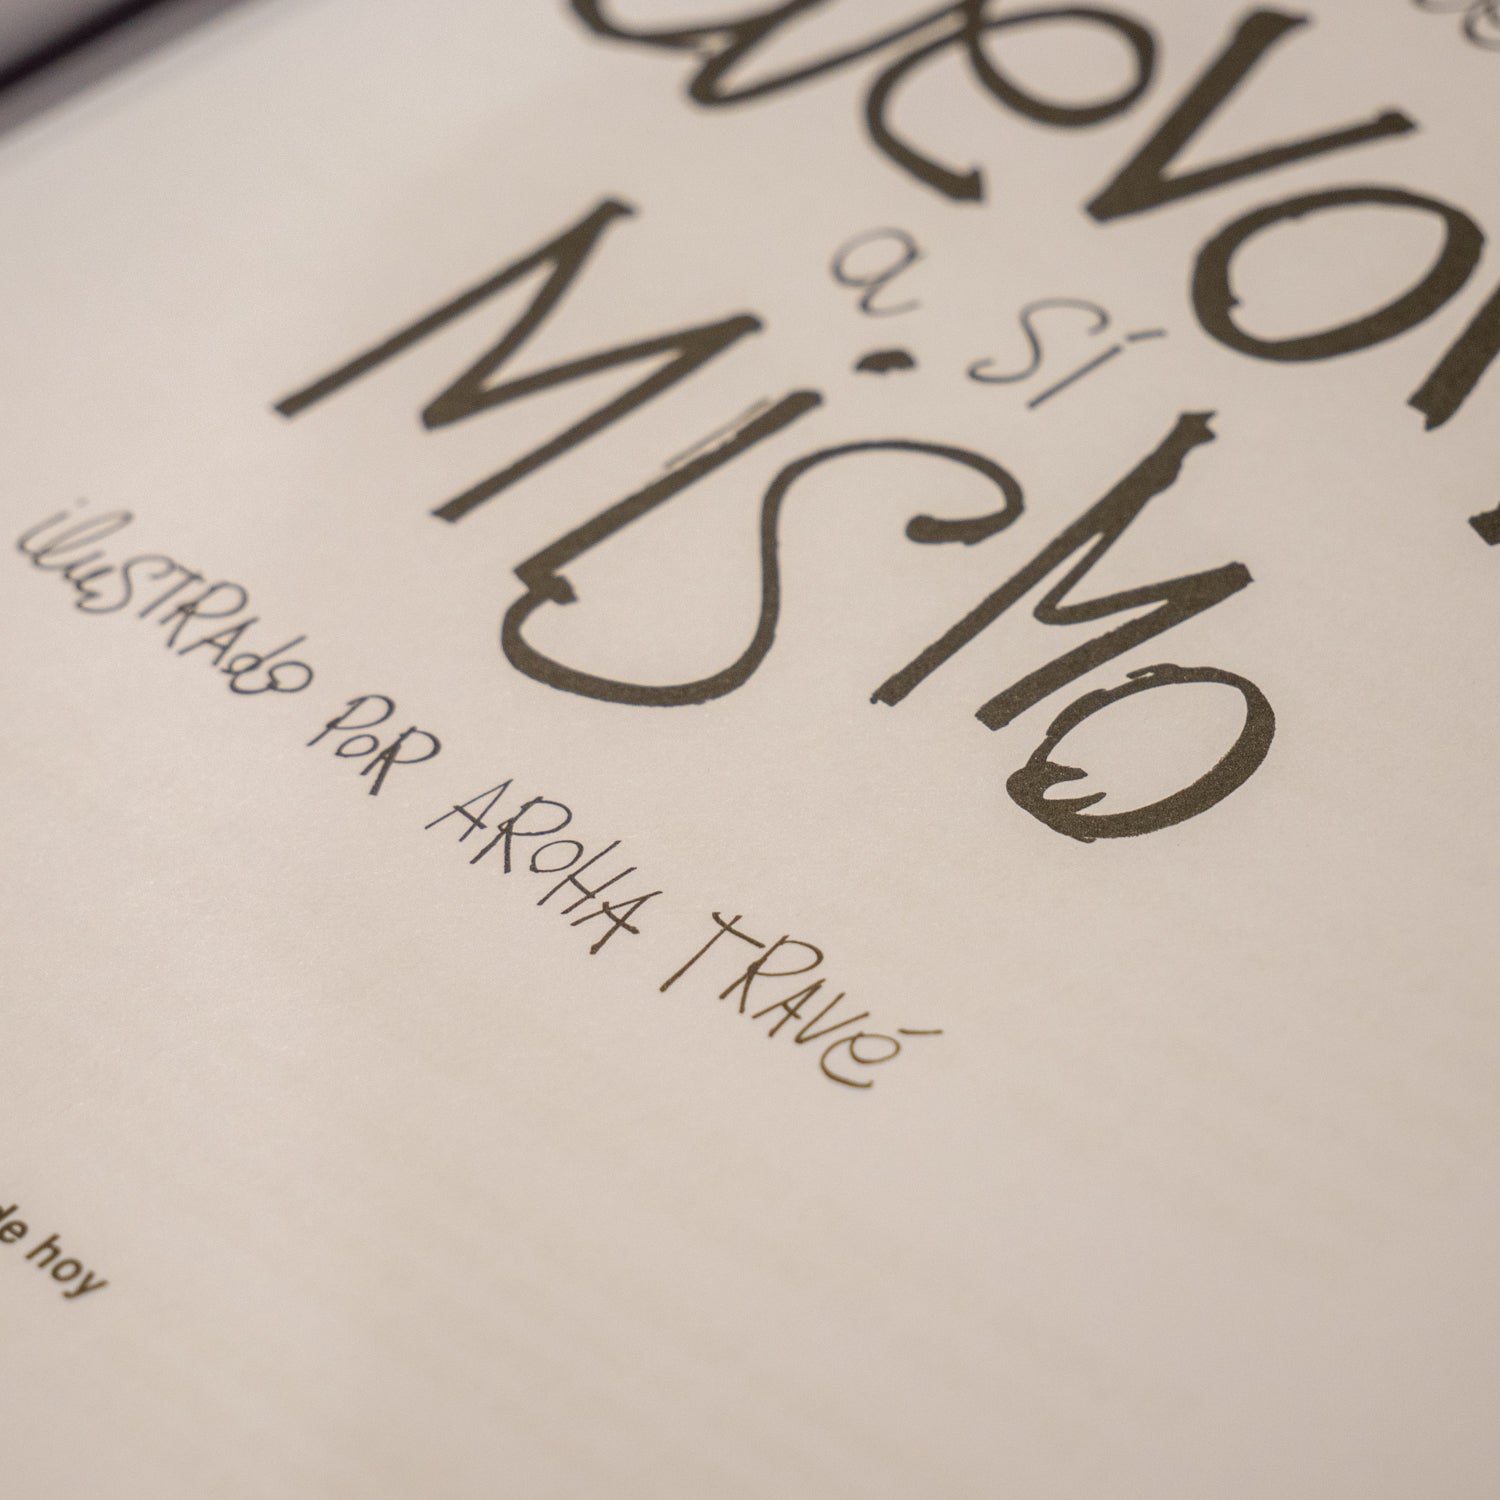 a sí
MiSMO
iluSTRAdo PoR AROHA TRAVÉ
de hoy